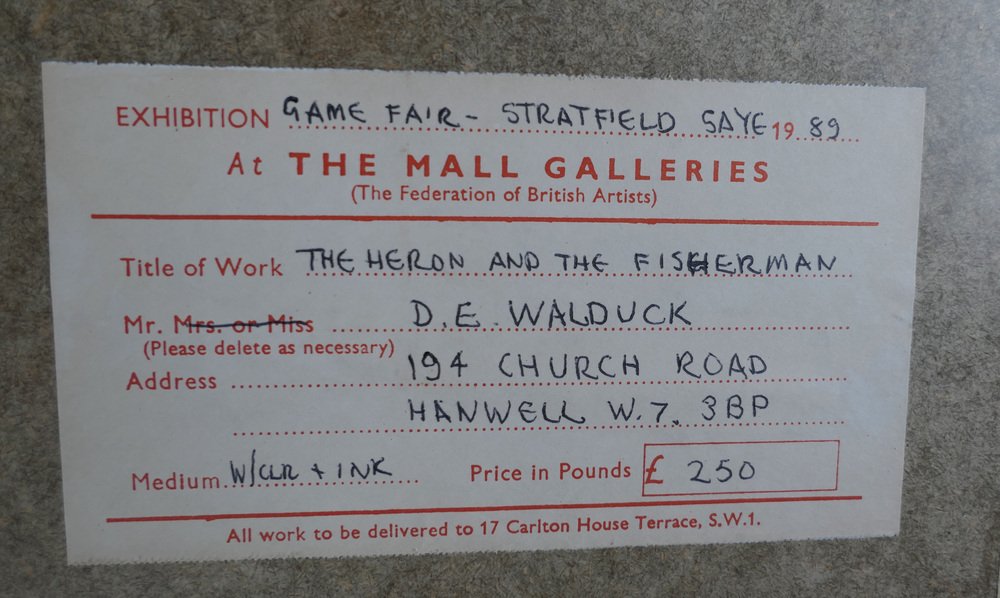 EXHIBITION GAME FAIR - STRATFIELD SAYE 1989
At THE MALL GALLERIES
(The Federation of British Artists)
Title of Work THE HERON AND THE FISHERMAN
Mr. Mrs. or Miss D.E. WALDUCK
(Please delete as necessary)
Address 194 CHURCH ROAD
HANWELL W.7. 3BP
Medium W/CLR + INK Price in Pounds £ 250
All work to be delivered to 17 Carlton House Terrace, S.W.1.